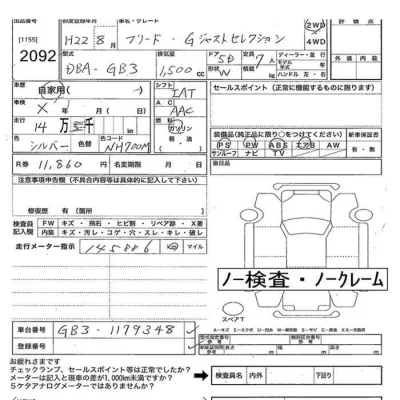 出品番号 初度登録年月 車名・グレード ドア 定員 2WD 評価点
[1155] H22 8月 フリード・Gジャストセレクション 5D 7人 4WD
2092 型式 排気量 形状 ディーラー・並行 外装 内装
DBA-GB3 1,500cc W モデル 年式 ハンドル 左・右
車歴 自家用 シフト IAT セールスポイント(正常に機能するものに限ります)
車検 X年 月 エアコン AAC
走行 14万 千 燃料 ガソリン 軽・油 装備品(純正品に限り○をつけてください) 新車保証書
シルバー 色替 色コード NH700M PS PW ABS エアB AW 有・無
サンルーフ ナビ TV
R券 11,860円 名変期限 月 日 後日品
注意事項申告欄(不具合内容等は具体的に記入して下さい)
修復歴 有(箇所
検査員記入欄 FW キズ・飛石・ヒビ割・リペア跡・X要
内装 キズ・汚レ・コゲ・穴・スレ・キレ・破レ
走行メーター指示 145886 km マイル
ノー検査・ノークレーム
スペアT
車台番号 GB3-1179348
登録番号
お疲れさまです
チェックランプ、セールスポイント等は正常でしたか?
メーターは記入と現車の差が1,000km未満ですか?
5ケタアナログメーターではありませんか?
検査員名 内外 下回り